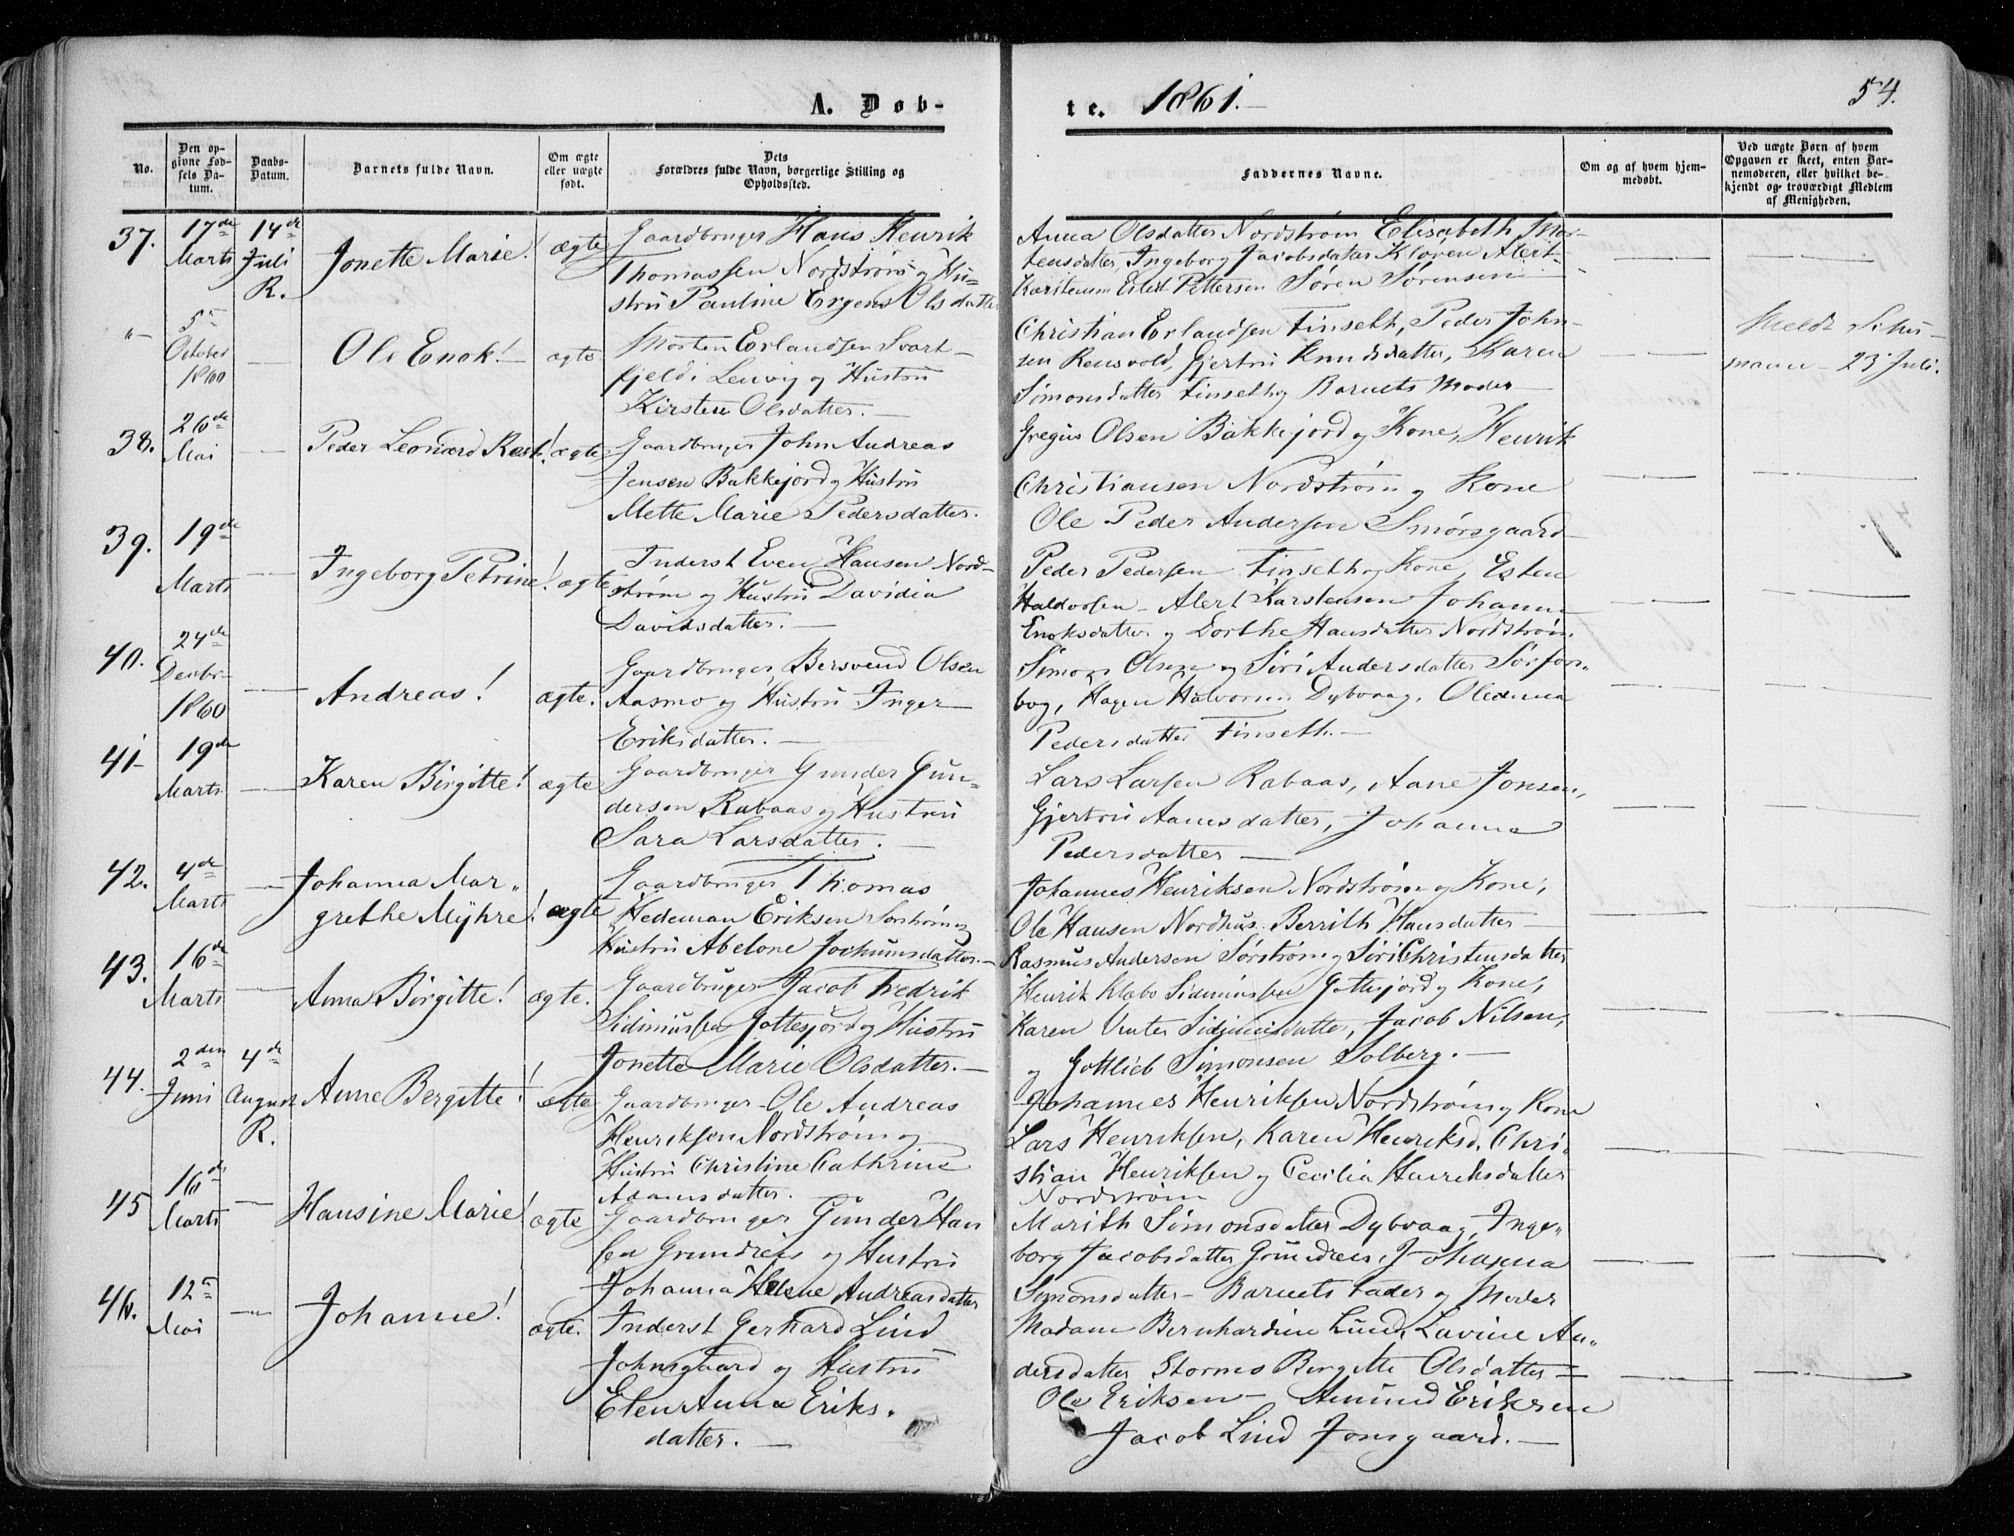 A. Døb-
te. 1861.
54.
No.
Den op-
givne Fød-
sels Da-
tum.
Daabs-
Datum.
Barnets fulde Navn.
Om ægte
eller uægte
født.
Dets
Forældres fulde Navn, borgerlige Stilling og
Opholdssted.
Faddernes Navne.
Om og af hvem hjem-
medøbt.
Ved uægte Børn af hvem
Opgaven er skeet, enten Bar-
nemoderen, eller hvilket be-
kjendt og troværdigt Medlem
af Menigheden.
37.
17de
Marts
14de
Juli
R.
Jonette Marie!
ægte
Gaardbruger Hans Henrik
Thomassen Nordstrøm og Hu-
stru Pauline Ergens Olsdatter
Anna Olsdatter Nordstrøm Elisabeth Mor-
tensdatter, Ingeborg Jacobsdatter Kloven Alert
Karstensen Pettersen Søren Sørensen
"-
5te
October
1860
Ole Enok!
ægte
Morten Erlandsen Svart-
fjeld i Lenvig og Hustru
Kirsten Olsdatter.
Christian Erlandsen Finseth, Peder John-
sen Rensvold, Gjertru Knudsdatter, Karen
Simonsdatter Finseth og Barnets Moder
23 Juli.
38.
26de
Mai
Peder Leonard Rest!
ægte
Gaardbruger John Andreas
Jensen Bakkejord og Hustru
Mette Marie Pedersdatter.
Gregus Olsen Bakkejord og Kone, Henrik
Christiansen Nordstrøm og Kone
Ole Peder Andersen Smørsgaard
39.
19de
Marts
Ingeborg Petrine!
ægte
Inderst Even Hansen Nord-
strøm og Hustru Davidia
Davidsdatter.
Peder Pedersen Finseth og Kone, Esten
Haldorsen - Alert Karstensen Johanna
Enoksdatter og Dorthe Hansdatter Nordstrøm.
40.
24de
Decbr
1860
Andreas!
ægte.
Gaardbruger Bersvend Olsen
Aasmo og Hustru Inger
Eriksdatter.
Simon Olsen og Siri Andersdatter Sørfor-
bog, Hagen Halvorsen Dybvaag, Oledena
Pedersdatter Finseth.
41
19de
Marts
Karen Birgitte!
ægte
Gaardbruger Gunder Gun-
dersen Rabaas og Hustru
Sara Larsdatter.
Lars Larsen Rabaas, Aane Jonsen,
Gjertru Aanesdatter, Johanna
Pedersdatter
42.
4de
Marts
Johanna Mar-
grethe Myhre!
ægte
Gaardbruger Thomas
Hedeman Eriksen Sørstrøm og
Hustru Abelone Jochumsdatter.
Johannes Henriksen Nordstrøm og Kone,
Ole Hansen Nordhus. Berrith Hansdatter
Rasmus Andersen Sørstrøm og Siri Christensdatter
43.
16de
Marts
Anna Birgitte!
ægte.
Gaardbruger Jacob Fredrik
Sidiniussen Gottesjord og Hustru
Jonette Marie Olsdatter.
Henrik Klabo Sidiniussen Gottesjord og Kone,
Karen Sidiniusdatter, Jacob Nilsen,
og Gottlieb Simonsen Solberg.
44.
2den
Juni
4de
August
R.
Anne Bergitte!
ægte
Gaardbruger Ole Andreas
Henriksen Nordstrøm og
Hustru Christine Cathrine
Adamsdatter.
Johannes Henriksen Nordstrøm og Kone
Lars Henriksen, Karen Henriksd. Chri-
stian Henriksen og Cecilia Henriksdatter
Nordstrøm
45
16de
Marts
Hansine Marie!
ægte
Gaardbruger Gunder Han
sen Grundreis og Hustru
Johanna Helene Andreasdatter
Marith Simonsdatter Dybvaag, Inge-
borg Jacobsdatter Grundreis, Johanna
Simonsdatter - Barnets Fader og Moder
46.
12te
Mai
Johanne!
ægte.
Inderst Gerhard Lind
Johnsgaard og Hustru
Elen Anna Eriks-
datter.
Madam Bernhardine Lund, Lavine An-
dersdatter Stornes Birgitte Olsdatter
Ole Eriksen - Amund Eriksen
Jacob Lind Jonsgaard.